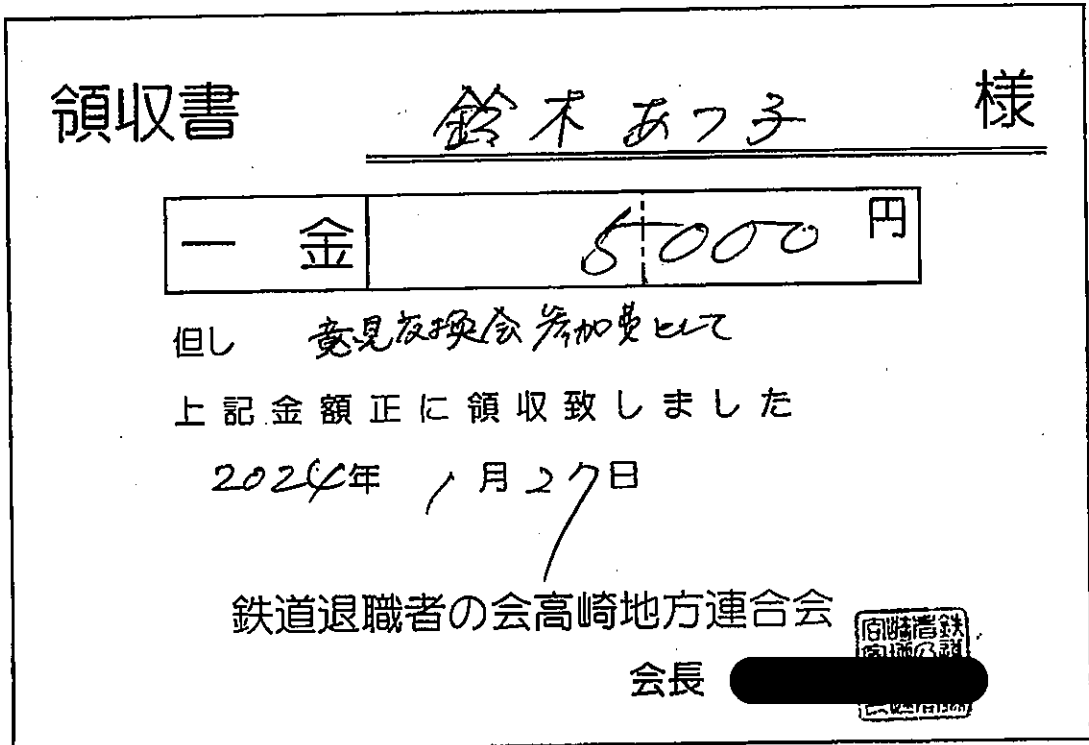 領収書 鈴木あつ子 様
一金 5000 円
但し 意見交換会参加費として
上記金額正に領収致しました
2024年 1月27日
鉄道退職者の会高崎地方連合会
会長